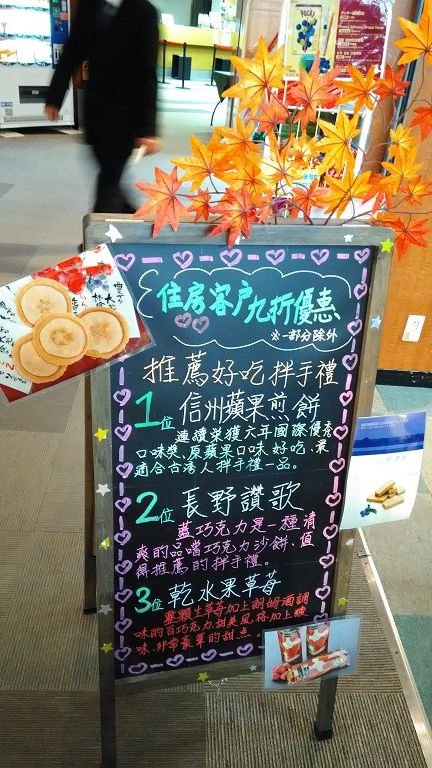 住房客户九折優惠
※一部分除外
推薦好吃拌手禮
1位 信州蘋果煎餅
連續榮獲六年國際優秀
口味獎、原蘋果口味好吃、最
適合台湾人拌手禮一品。
2位 長野讃歌
藍巧克力是一種清
爽的品嚐巧克力沙餅、值
得推薦的拌手禮。
3位 乾水果草莓
整顆生草莓加上胡椒酒調
味的白巧克力甜美風格加上酸
味、非常豪華的甜点。
POCKY